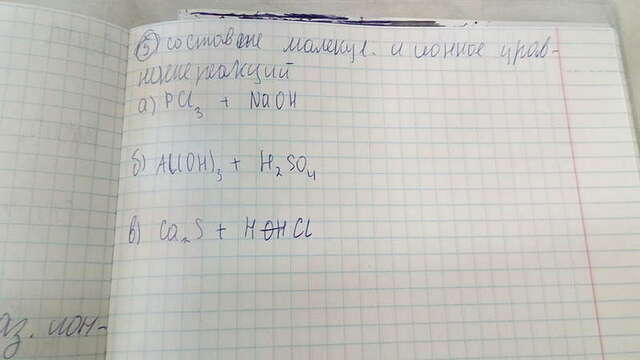 5) составьте молекул. и ионное урав-
нение реакций
а) PCl3 + NaOH
б) Al(OH)3 + H2SO4
в) S + HCl
аз. ион-